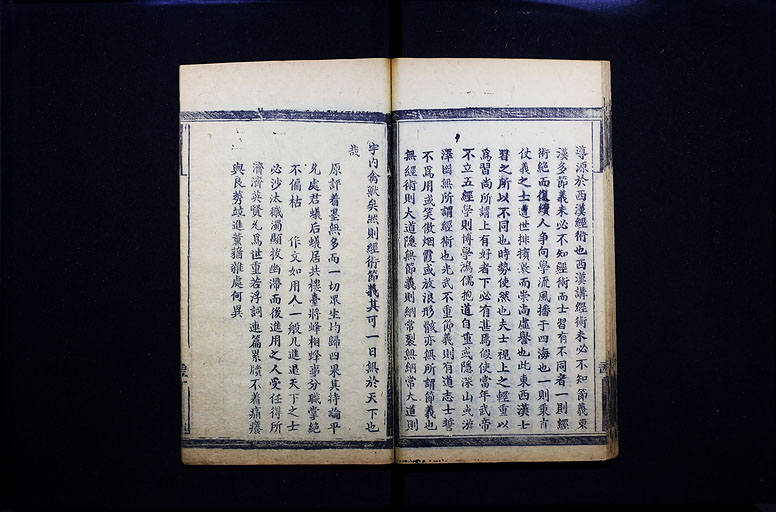 導源於西漢經術也西漢講經術未必不知節義東
漢多節義未必不知經術而士習有不同者一則經
術絕而復續人爭向學流風播于四海也一則秉吉
仗義之士遭世排擯激而崇尚虛譽也此東西漢士
習之所以不同也時勢使然也夫士視上之輕重以
為習尚所謂上有好者下必有甚焉假使當年武帝
不立五經學則博學鴻儒抱道自重或隱深山或游
澤國無所謂經術也光武不重節義則有道志士誓
不為用或笑傲烟霞或放浪形骸亦無所謂節義也
無經術則大道隱無節義則綱常裂無綱常大道則
宇內禽獸矣然則經術節義其可一日無於天下也
哉
原評着墨無多而一切眾生均歸四果其持論平
允處君蟻后蟻居共樓臺將蜂相蜂事分職掌絕
不偏枯 作文如用人一般凡進退天下之士
必沙汰纖濁顯拔幽滯而後進用之人受任得所
濟濟英賢允為世重若浮詞連篇累牘不着痛癢
與良莠竝進薰蕕雜處何異